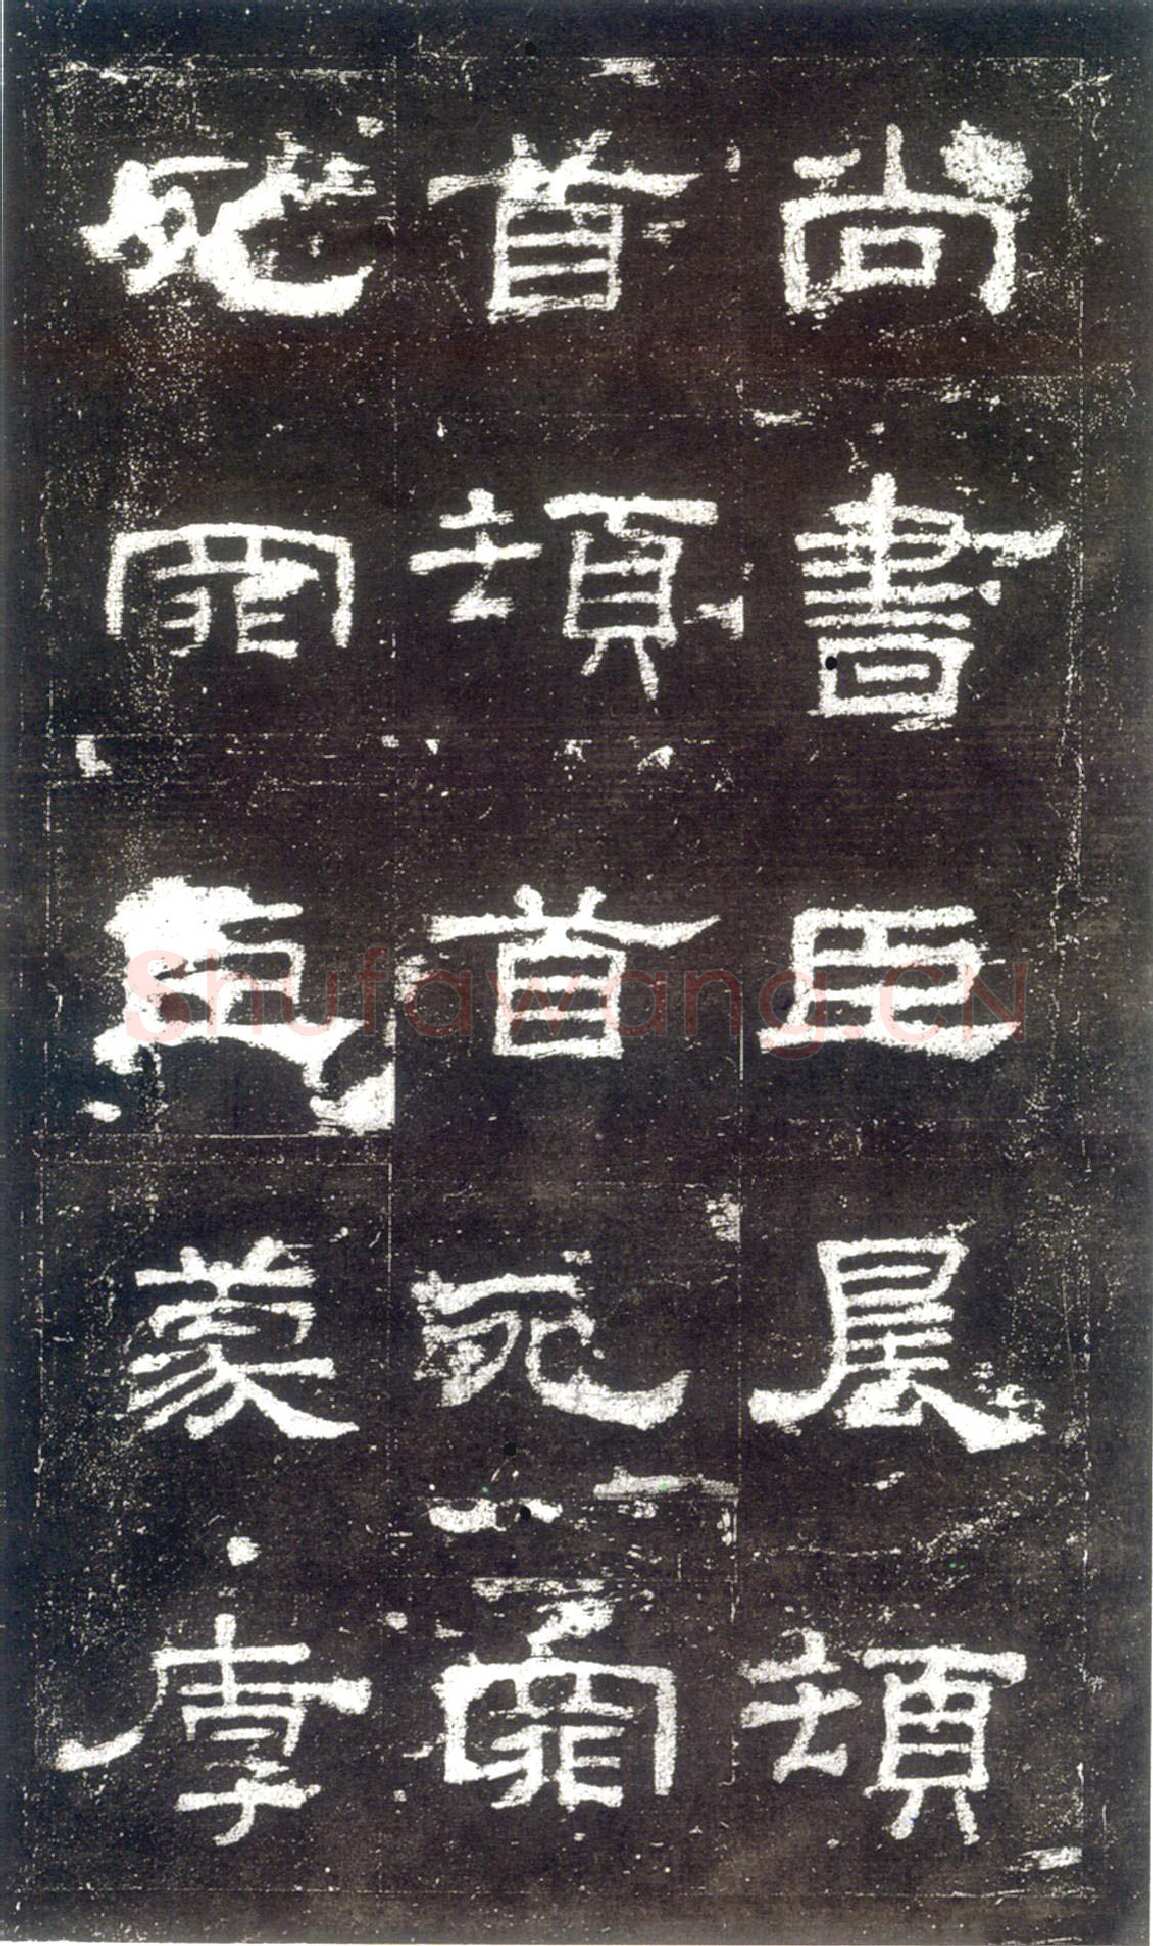 尚書臣晨頓
首頓首死罪
死罪臣蒙厚
Shufawang.CN